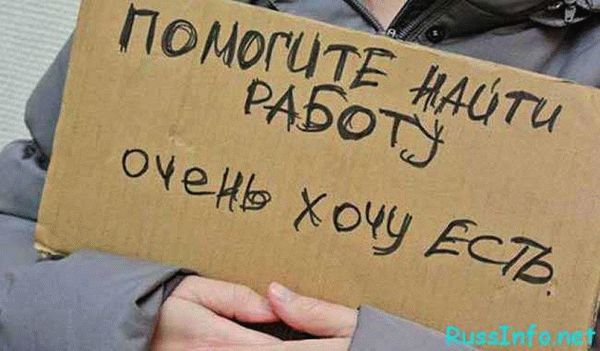 ПОМОГИТЕ НАЙТИ
РАБОТУ
очень хочу ЕСТЬ.
RussInfo.net